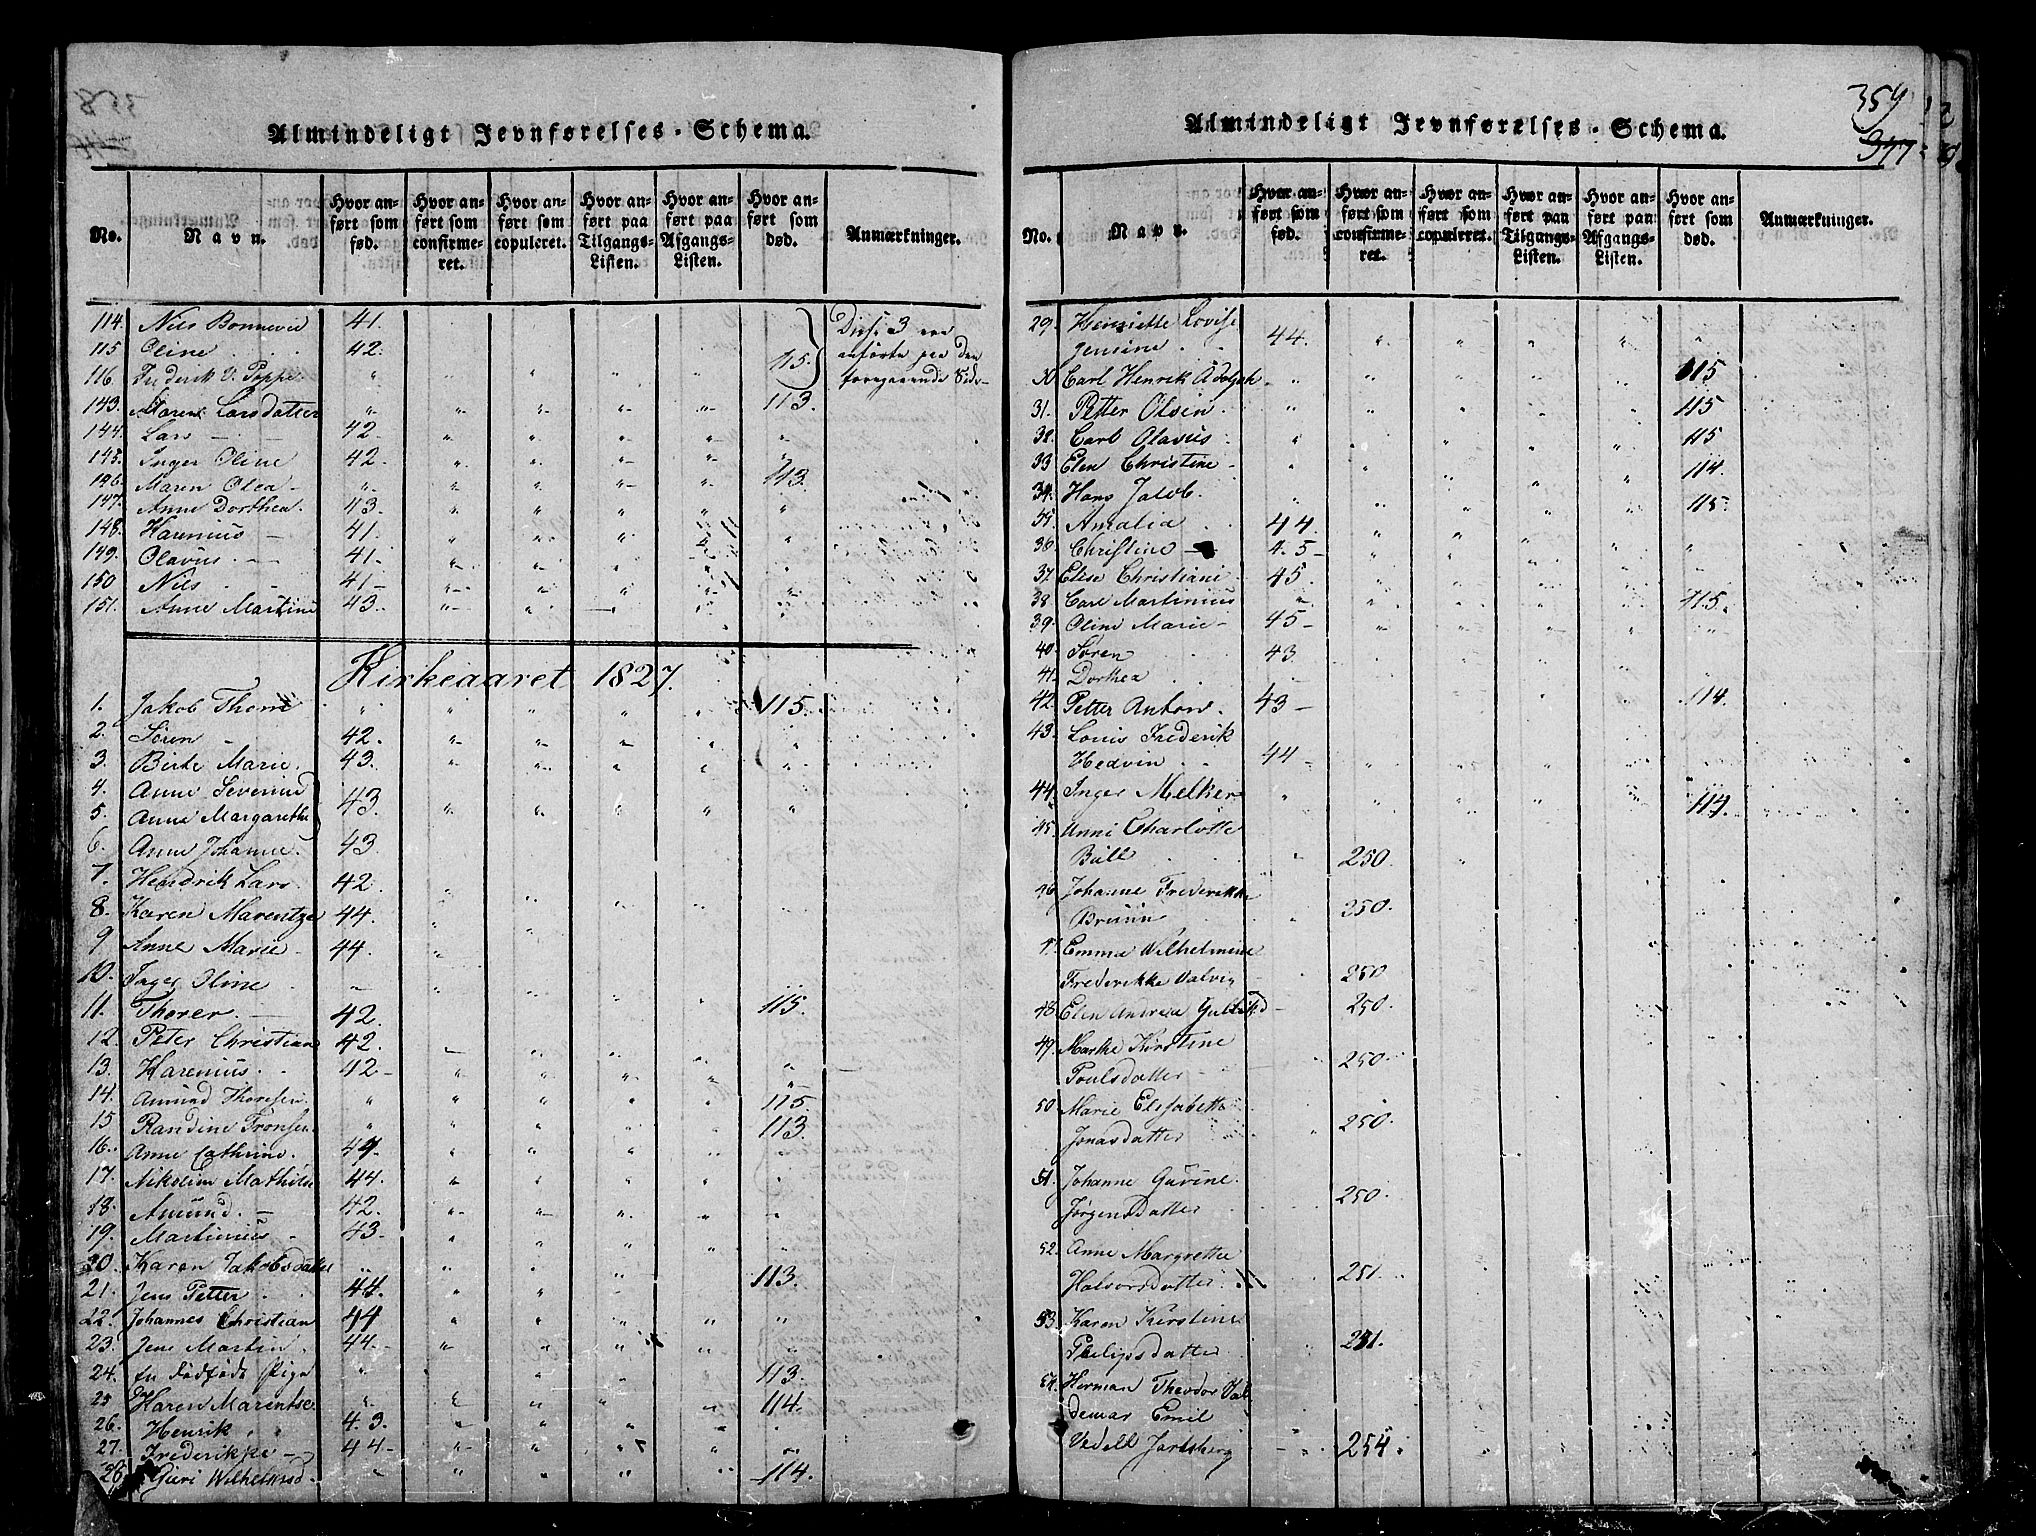 Almindeligt Jevnførelses-Schema.
No. Navn. Hvor anført som fød. Hvor anført som confirmeret. Hvor anført som copuleret. Hvor anført paa Tilgangs-Listen. Hvor anført paa Afgangs-Listen. Hvor anført som død. Anmærkninger.
114. Nils Bonnevie 41.
115 Oline 42. 115.
116. Frederik V. Poppe
Disse 3 ere anførte paa den foregaaende Side
143. Maren Larsdatter 113.
144. Lars 42.
145. Inger Oline 42.
146. Maren Olea 113.
147. Anne Dorthea. 43.
148. Hannius 41.
149. Olavus 41.
150 Nils 41
151. Anne Martine 43.
Kirkeaaret 1827.
1. Jakob Thorne 115.
2. Søren 42.
3. Birte Marie. 43.
4. Anne Severine
5. Anne Margarethe 43.
6. Anne Johanne. 43.
7. Hendrik Lars 42.
8. Karen Marentze 44.
9 Anne Marie 44.
10. Inger Oline
11. Thorer 42. 115.
12. Peter Christian 42.
13. Karenius 42
14. Amund Thoresen 115.
15 Randine Tronsen 113.
16. Anne Cathrine. 44.
17. Nikoline Mathilde 44.
18. Amund. 42.
19. Martinius 43.
20. Karen Jakobsdatter 113.
21. Jens Petter 44.
22. Johannes Christian 44
23. Jens Martin. 44.
24. en dødfødt Pige 113.
25 Karen Marentse 114.
26. Henrik 43
27. Frederikke 44
28 Guri Wilhelmsd. 114.
359
377
Almindeligt Jevnførelses-Schema.
No. Navn. Hvor anført som fød. Hvor anført som confirmeret. Hvor anført som copuleret. Hvor anført paa Tilgangs-Listen. Hvor anført paa Afgangs-Listen. Hvor anført som død. Anmærkninger.
29. Henriette Lovise
Jensine 44.
30 Carl Henrik Adolph 115
31. Petter Olsen 115
32. Carl Olavus 115
33 Elen Christine 114.
34. Hans Jacob. 115.
35. Amalia 44.
36. Christine 45
37. Elise Christiane 45.
38. Carl Martinius 115.
39. Oline Marie 45
40. Søren 43
41. Dorthea
42. Petter Anton. 43 114.
43. Louis Frederik
Hedven 44
44. Inger Melker 114.
45. Anne Charlotte
Bull 250.
46. Johanne Frederikke
Bruun 250.
47. Emma Wilhelmine
Frederikke 250
48. Elen Andrea 250.
49. Marthe Kirstine
Poulsdatter 250
50 Marie Elisabeth
Jonasdatter 250.
51. Johanne Gurine
Jørgensdatter 250.
52. Anne Margrethe
Halvorsdatter. 251.
53. Karen Kirstine
Philipsdatter 251.
54. Herman Theodor Val
demar Emil
Vedell Jarlsberg 254.